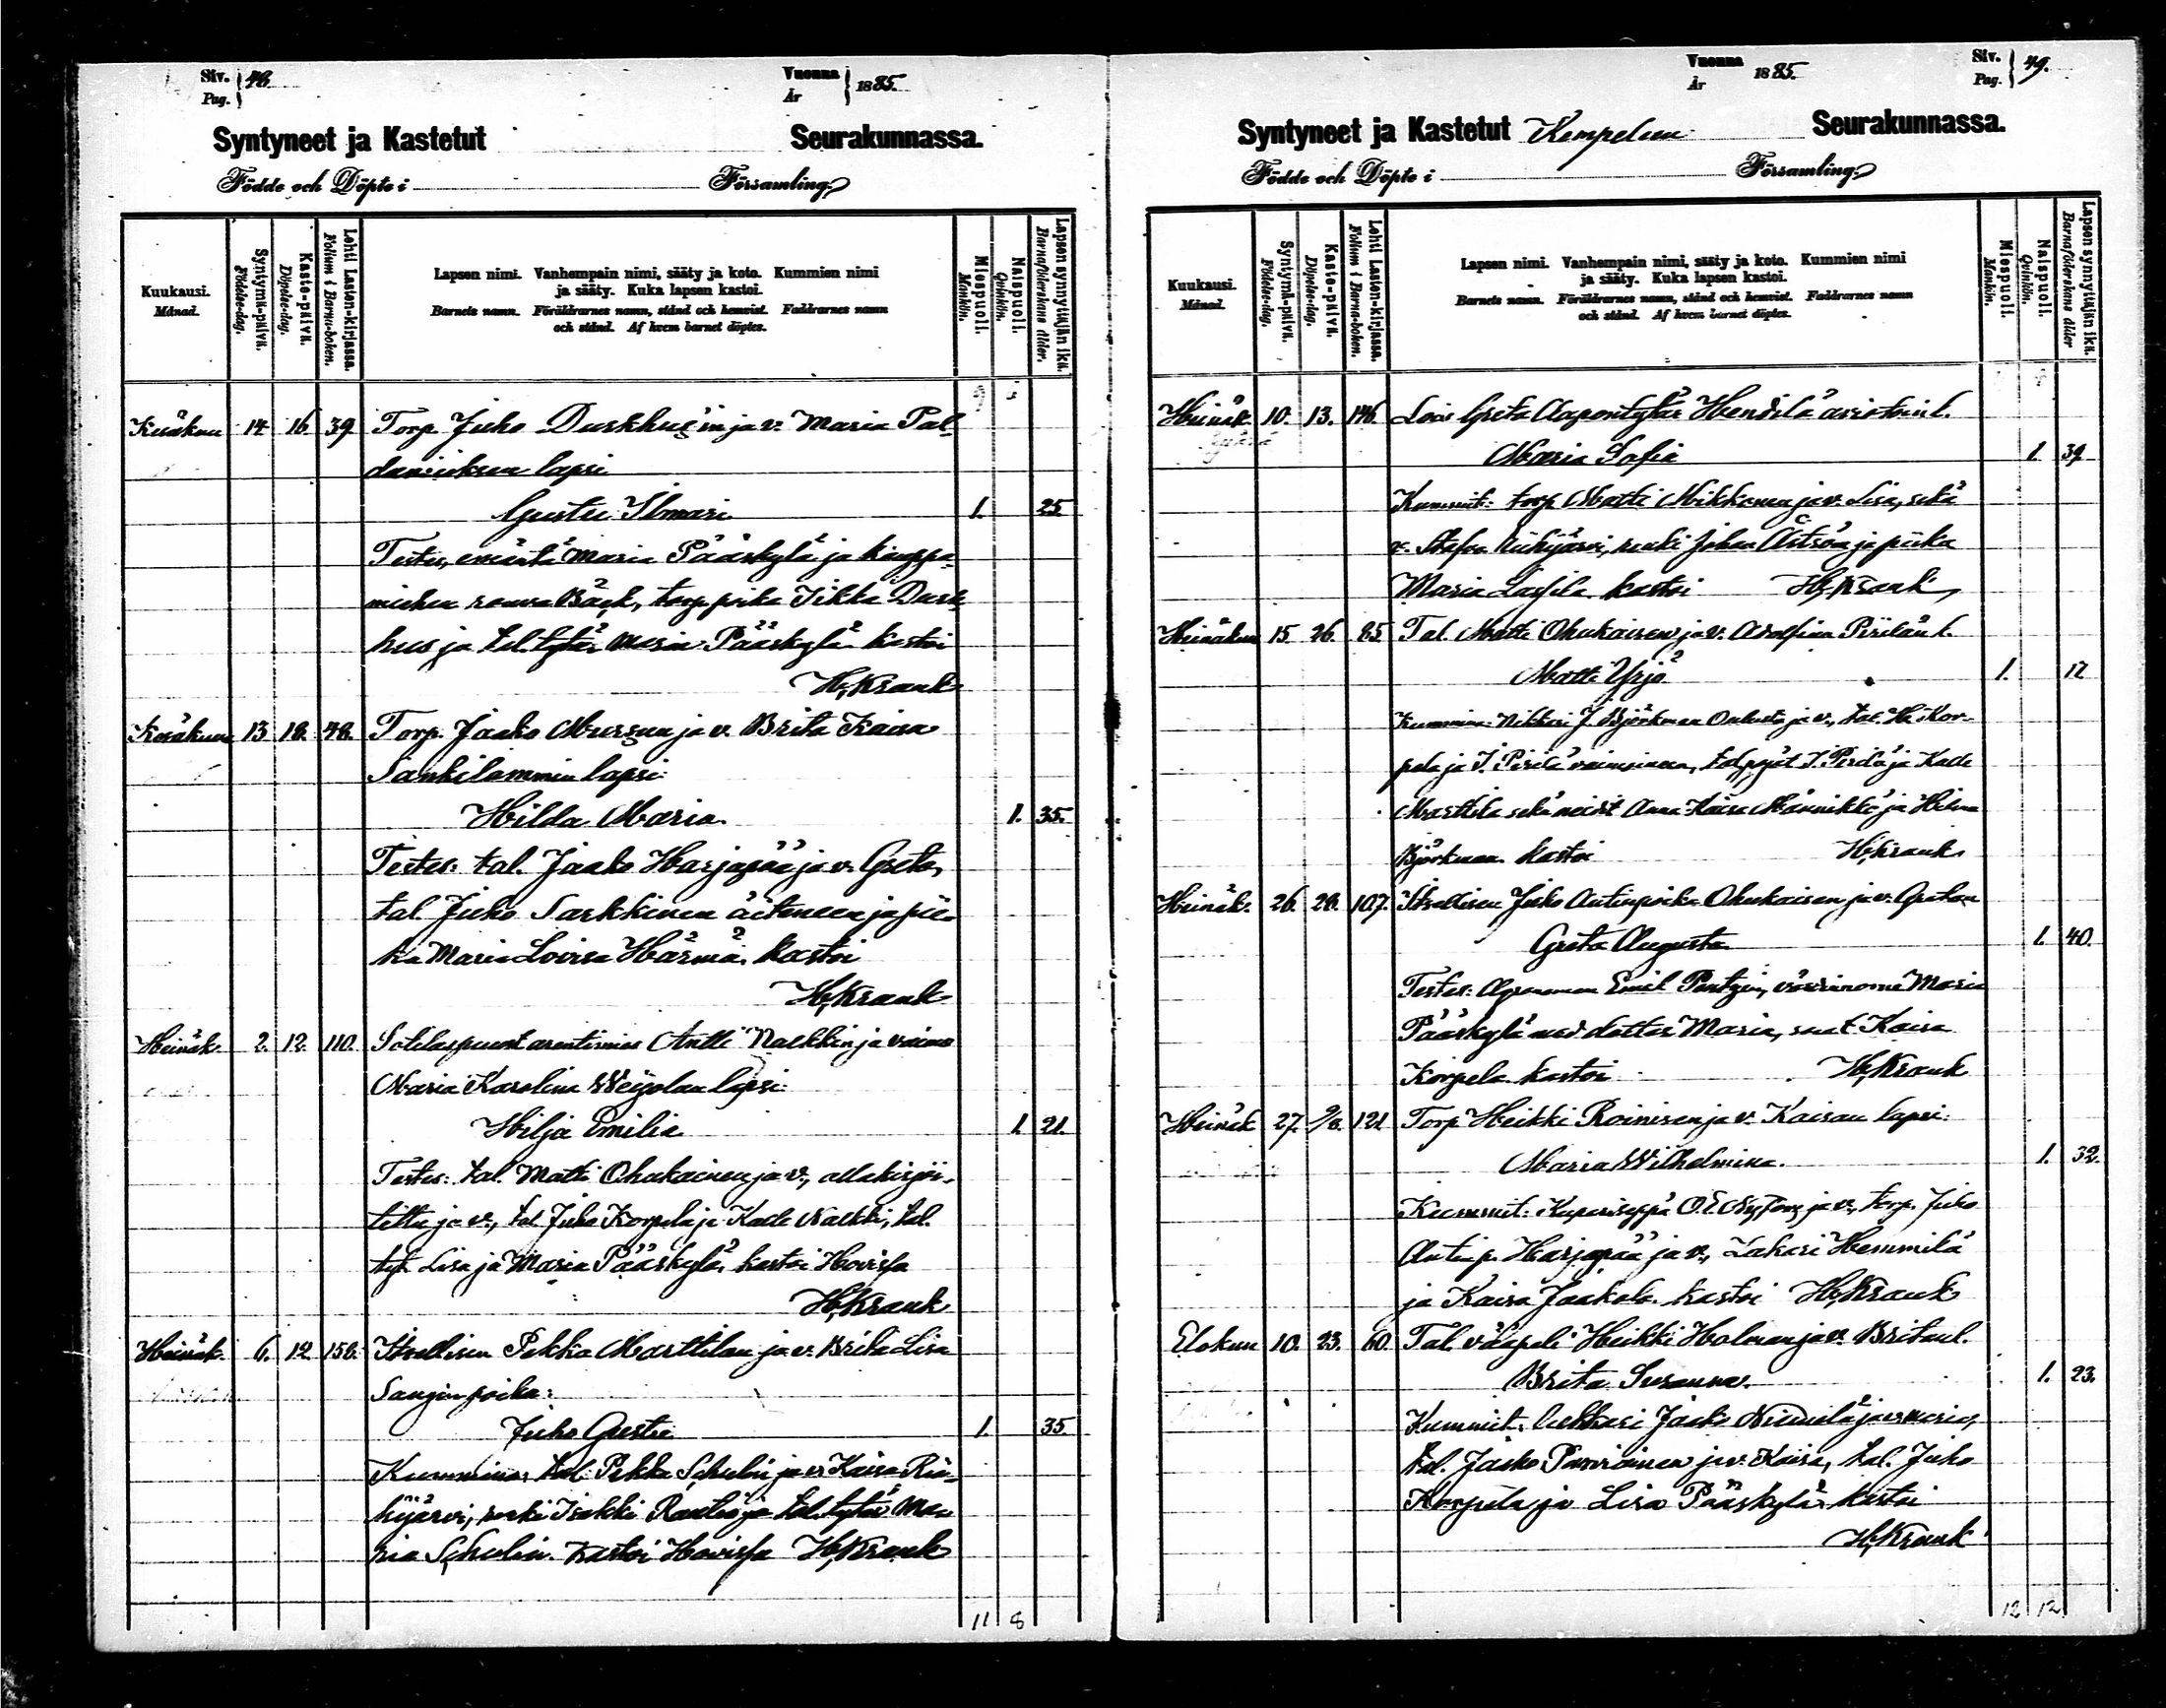 Siv. Pag. } 48.
Vuonna År } 1885.
Syntyneet ja Kastetut Seurakunnassa.
Födde och Döpte i Församling.
Kuukausi. Månad.
Syntymä-päivä. Födelse-dag.
Kaste-päivä. Döpelse-dag.
Lehti Lasten-kirjassa. Folium i Barna-boken.
Lapsen nimi. Vanhempain nimi, sääty ja koto. Kummien nimi
ja sääty. Kuka lapsen kastoi.
Barnets namn. Föräldrarnes namn, stånd och hemvist. Faddrarnes namn
och stånd. Af hvem barnet döptes.
Miespuoli. Mankön.
Naispuoli. Qvinkön.
Lapsen synnyttäjän ikä. Barnaföderskans ålder.
Kesäkuu 14 16 39 Torp. Juho Duskhus'in ja v. Maria Pal-
lapsi
Gustu Ilmari 1. 25
Testes, emäntä Maria Pääskylä ja kauppa-
miehen rouva Bäck, torp. poika Iikka Dusk
hus ja tal. tytär Maria Pääskylä kastoi
H. Krank
Kesäkuu 13 18. 48. Torp. Jaako Mursun ja v. Brita Kaisa
Sankilammin lapsi:
Hilda Maria. 1. 35.
Testes: tal. Jaako Harjapää ja v. Greta,
tal. Juho Sarkkinen äiteneen ja pii-
ka Maria Lovisa Härmä. kastoi
H. Krank
Heinäk. 2. 12. 110. Antti Naekkin ja vaimo
Maria Karolina Weijolan lapsi:
Hilja Emilia 1. 21.
Testes: tal. Matti Ohukainen ja v., allekirjoi-
tettu ja v., tal. Juho Korpela ja Kade Naekki, tal.
tyt. Lisa ja Maria Pääskylä, kastoi Hovissa
H. Krank
Heinäk. 6. 12 156. Itsellisen Pekka Marttilan ja v. Brita Lisa
Sangin poika:
Juho Gustu 1. 35.
Kummina: tal. Pekka Schulin ja v. Kaisa Rii-
hijärvi, renki Isakki Rantio ja tal. tytär Ma-
ria Schulin. Kastoi Hovissa H. Krank
11 8
Vuonna År 1885.
Siv. Pag. } 49.
Syntyneet ja Kastetut Kempeleen Seurakunnassa.
Födde och Döpte i Församling.
Kuukausi. Månad.
Syntymä-päivä. Födelse-dag.
Kaste-päivä. Döpelse-dag.
Lehti Lasten-kirjassa. Folium i Barna-boken.
Lapsen nimi. Vanhempain nimi, sääty ja koto. Kummien nimi
ja sääty. Kuka lapsen kastoi.
Barnets namn. Föräldrarnes namn, stånd och hemvist. Faddrarnes namn
och stånd. Af hvem barnet döptes.
Miespuoli. Mankön.
Naispuoli. Qvinkön.
Lapsen synnyttäjän ikä. Barnaföderskans ålder
Heinäk. 10. 13. 146. Lois Greta Aapontytär Hendilä l.
Maria Sofia 1. 39
Kummit: torp. Matti Mikkonen ja v. Lisa, sekä
v. Riihijärvi, renki Johan Åström ja piika
Maria Lassila kastoi H. Krank
Heinäkuu 15 26. 85 Tal. Matti Ohukaisen ja v. Adolfina Pirilän l.
Matti Yrjö 1. 12
Kummina: Nikkari J. Björkman Oulusta ja v., tal. H. Kor-
pela ja J. Pirilä vaimoineen, tal. pojat J. Pirilä ja Kade
Marttila sekä neidit Anna Kaisa Männikkö ja Hilma
Björkman kastoi H. Krank
Heinäk. 26. 28. 107. Itsellisen Juho Antinpoika Ohukaisen ja v. Gretan
Greta Augusta 1. 40.
Testes: Agronomen Emil Pentzin, värdinnorne Maria
Pääskylä med dotter Maria, samt Kaisa
Korpela kastoi H. Krank
Heinäk 27. 2/8. 121 Torp. Heikki Roinisen ja v. Kaisan lapsi:
Maria Wilhelmina. 1. 32.
Kummit: Kupariseppä O. E. ja v., torp. Juho
Antinp. Harjapää ja v., Zakari Hemmilä
ja Kaisa Jaakola. kastoi H. Krank
Elokuu 10. 23. 60. Tal. vääpeli Heikki Holman ja v. Britan l.
Brita Susanna. 1. 23.
Kummit: Lukkari Jaako Niemelä ja v. Maria,
tal. Jaako Parviainen ja v. Kaisa, tal. Juho
Korpela ja Lisa Pääskylä kastoi
H. Krank
12 12